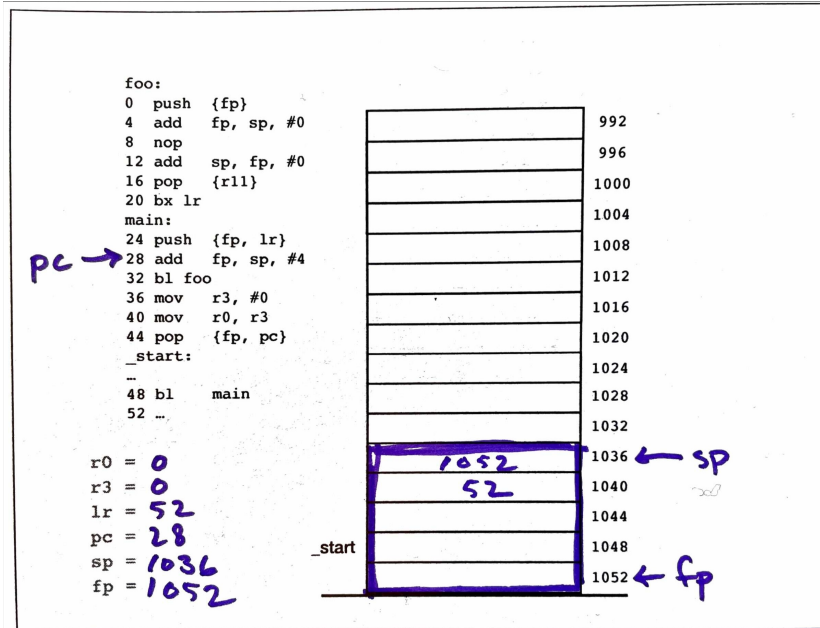 foo:
0 push {fp}
4 add fp, sp, #0
8 nop
12 add sp, fp, #0
16 pop {r11}
20 bx lr
main:
24 push {fp, lr}
pc → 28 add fp, sp, #4
32 bl foo
36 mov r3, #0
40 mov r0, r3
44 pop {fp, pc}
_start:
…
48 bl main
52 …
r0 = 0
r3 = 0
lr = 52
pc = 28
sp = 1036
fp = 1052
992
996
1000
1004
1008
1012
1016
1020
1024
1028
1032
1052 1036 ← sp
52 1040
1044
_start 1048
1052 ← fp